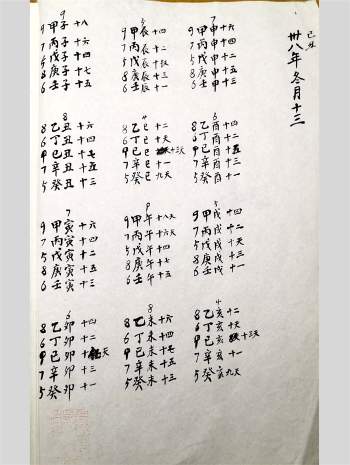 己丑
卅八年冬月十三
9
9甲子十八
7丙子十六
5戊子十四
8庚子十七
6壬子十五
5
9甲辰十四
7丙辰十二
5戊辰十天
8庚辰十三
6壬辰十一
7
9甲申十六
7丙申十四
5戊申十二
8庚申十五
6壬申十三
8
8乙丑十六
6丁丑十四
9己丑十七
7辛丑十五
5癸丑十三
4
8乙巳十二
6丁巳十天
9己巳十三天
7辛巳十一
5癸巳九天
6
8乙酉十四
6丁酉十二
9己酉十五
7辛酉十三
5癸酉十一
7
9甲寅十六
7丙寅十四
5戊寅十二
8庚寅十五
6壬寅十三
9
9甲午十八天
7丙午十六天
5戊午十四
8庚午十七
6壬午十五
5
9甲戌十四
7丙戌十二
5戊戌十天
8庚戌十三
6壬戌十一
6
8乙卯十四
6丁卯十二
9己卯十五天
7辛卯十三
5癸卯十一
8
8乙未十六
6丁未十四
9己未十七
7辛未十五
5癸未十三
4
8乙亥十二
6丁亥十天
9己亥十三天
7辛亥十一
5癸亥九天